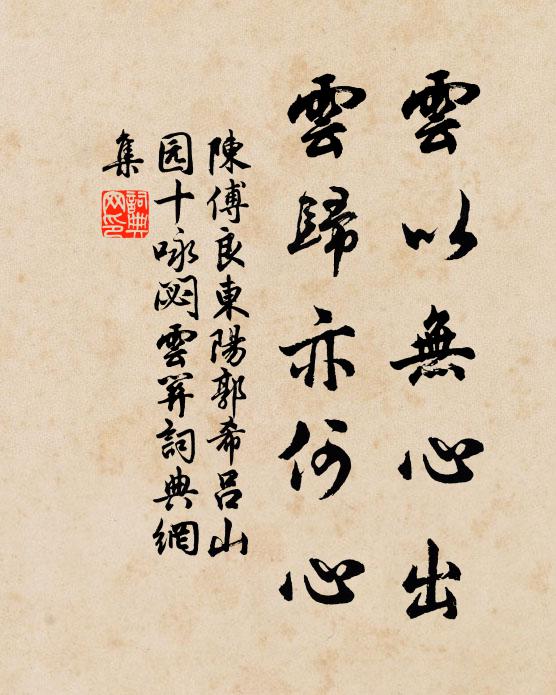 雲以無心出
雲歸亦何心
陳傅良東陽郭希呂山
园十咏閟雲筭詞典網
集
詞典
网印